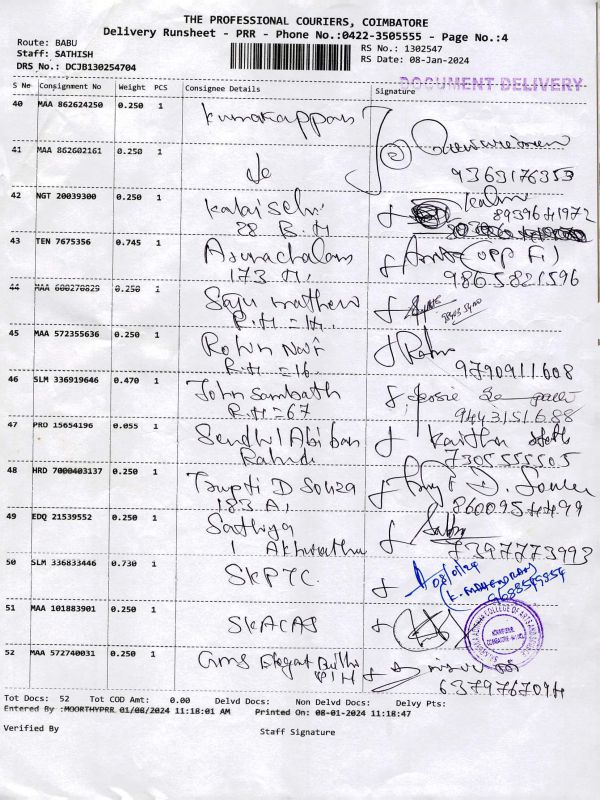 THE PROFESSIONAL COURIERS, COIMBATORE
Delivery Runsheet - PRR - Phone No.:0422-3505555 - Page No.:4
Route: BABU
Staff: SATHISH
DRS No.: DCJB130254704
RS No.: 1302547
RS Date: 08-Jan-2024
DOCUMENT DELIVERY
S No Consignment No Weight PCS Consignee Details Signature
40 MAA 862624250 0.250 1
41 MAA 862602161 0.250 1 do
9363176353
42 NGT 20039300 0.250 1 Kalai Selvi
28 R.H 8939641972
43 TEN 7675356 0.745 1 Arunachalam
173 H, 9865821596
44 MAA 600270829 0.250 1 Saju mathew
R.H = 14,
45 MAA 572355636 0.250 1 Rohn Nair Rohn
R.H = 16 9790911608
46 SLM 336919646 0.470 1 John Sambath Jessie
R.H = 67 9443151688
47 PRO 15654196 0.055 1 Sendhil Abi ban Karthi
7305555505
48 HRD 7000403137 0.250 1 Trupti D Souza
183 A, 8600954499
49 EDQ 21539552 0.250 1 Sathiya
1 7397773993
50 SLM 336833446 0.730 1 SKPTC 08/01/24
(K. MAHENDRAN)
51 MAA 101883901 0.250 1 SKACAS
52 MAA 572740031 0.250 1 Gms Elegant
6379767094
Tot Docs: 52 Tot COD Amt: 0.00 Delvd Docs: Non Delvd Docs: Delvy Pts:
Entered By :MOORTHYPRR 01/08/2024 11:18:01 AM Printed On: 08-01-2024 11:18:47
Verified By Staff Signature